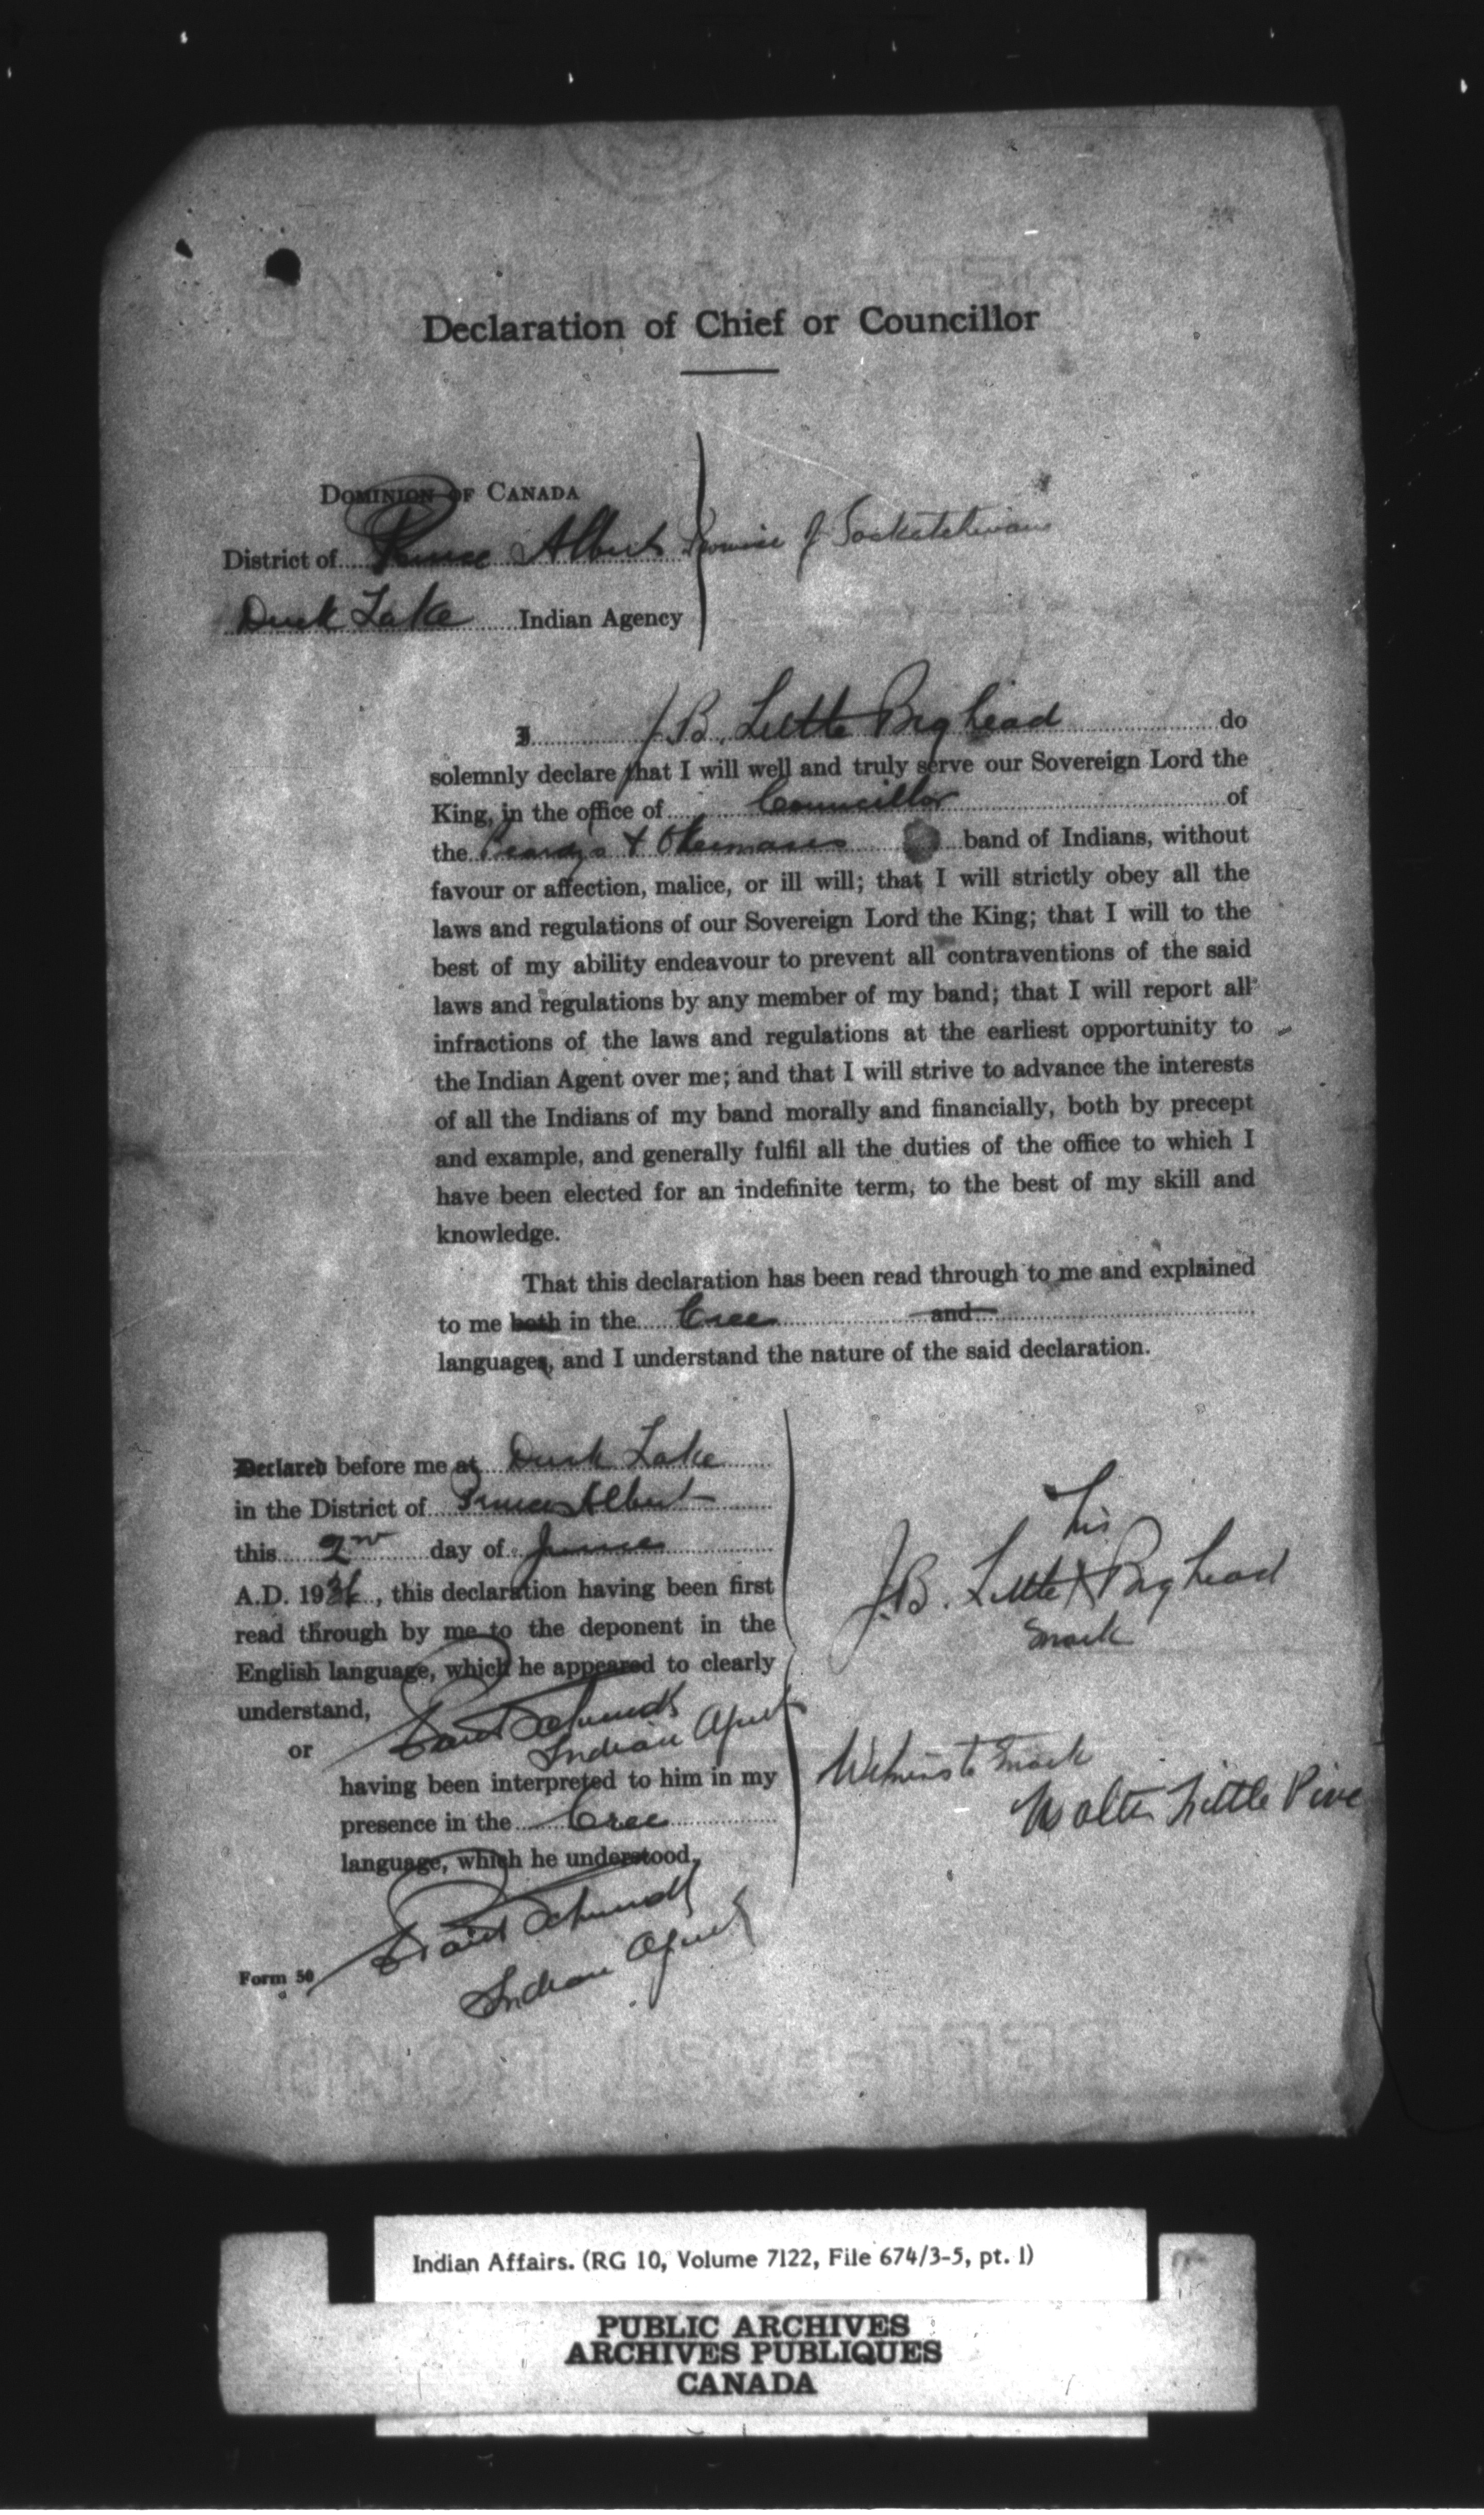 Declaration of Chief or Councillor
DOMINION OF CANADA
District of Prince Albert Province of Saskatchewan
Duck Lake Indian Agency
I J.B. Little Bighead do
solemnly declare that I will well and truly serve our Sovereign Lord the
King, in the office of Councillor of
the Beardys & Okemasis band of Indians, without
favour or affection, malice, or ill will; that I will strictly obey all the
laws and regulations of our Sovereign Lord the King; that I will to the
best of my ability endeavour to prevent all contraventions of the said
laws and regulations by any member of my band; that I will report all
infractions of the laws and regulations at the earliest opportunity to
the Indian Agent over me; and that I will strive to advance the interests
of all the Indians of my band morally and financially, both by precept
and example, and generally fulfil all the duties of the office to which I
have been elected for an indefinite term, to the best of my skill and
knowledge.
That this declaration has been read through to me and explained
to me both in the Cree and
languages, and I understand the nature of the said declaration.
Declared before me at Duck Lake
in the District of Prince Albert
this 2nd day of June
A.D. 1936, this declaration having been first
read through by me to the deponent in the
English language, which he appeared to clearly
understand,
Schmidt
Indian Agent
or
having been interpreted to him in my
presence in the Cree
language, which he understood.
Schmidt
Indian Agent
Form 50
his
J.B. Little X Bighead
mark
Witness to mark
Walter Little Pine
Indian Affairs. (RG 10, Volume 7122, File 674/3-5, pt. 1)
PUBLIC ARCHIVES
ARCHIVES PUBLIQUES
CANADA